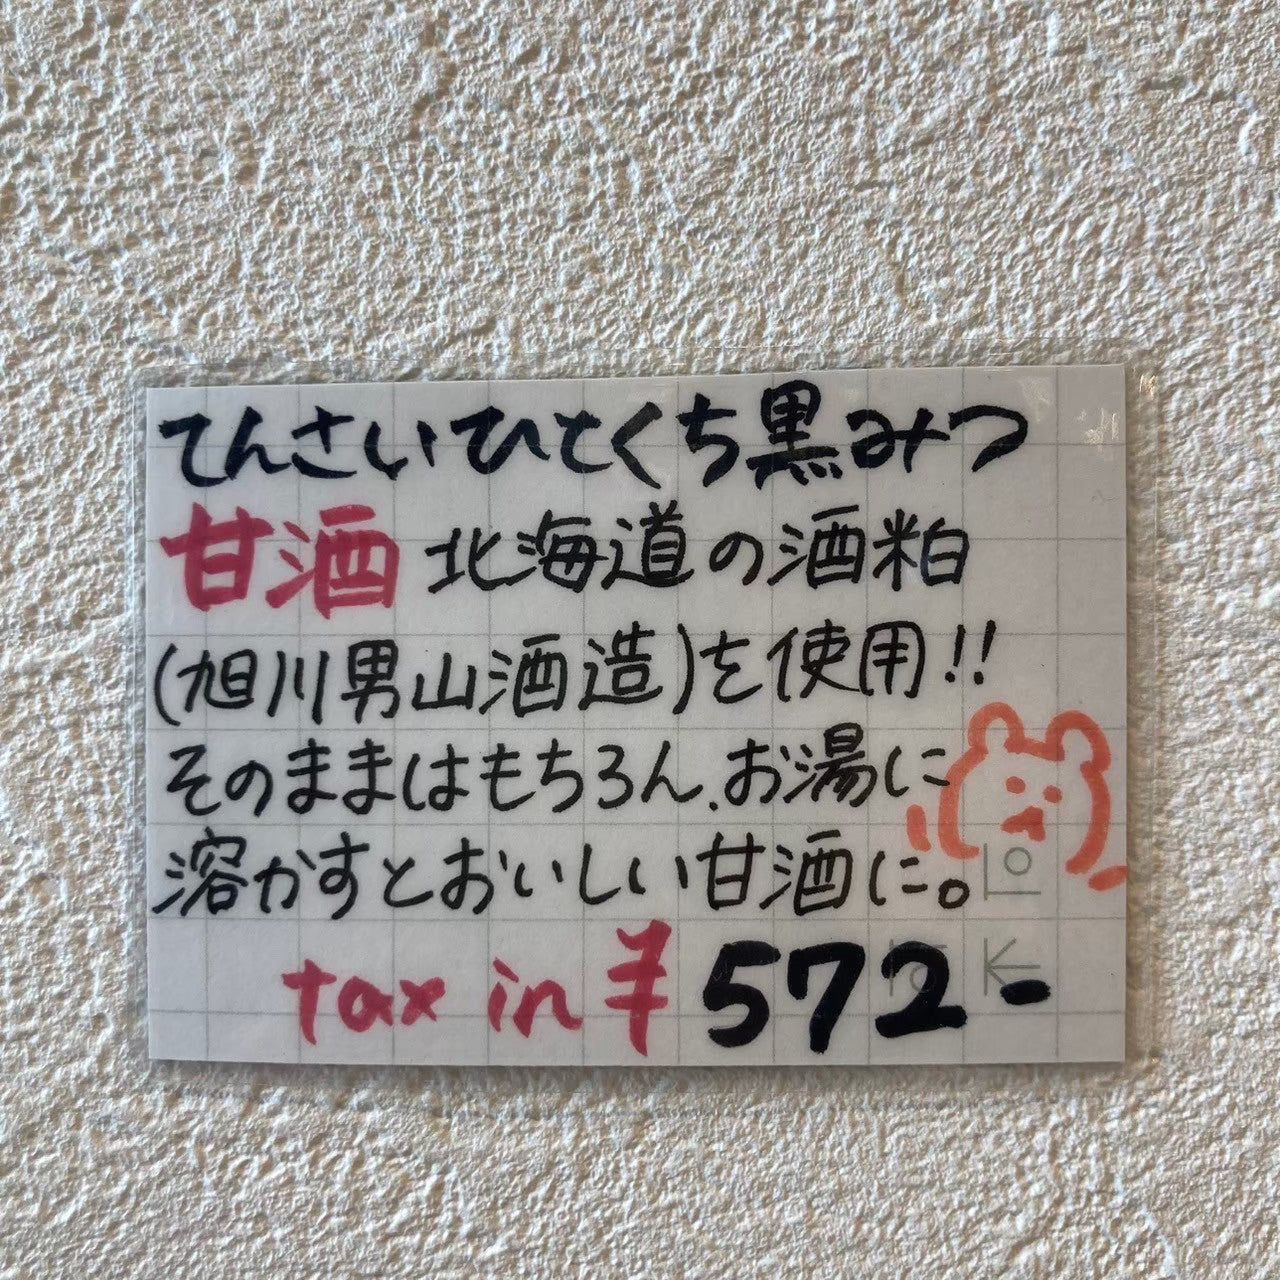 てんさいひとくち黒みつ
甘酒 北海道の酒粕
(旭川男山酒造)を使用!!
そのままはもちろん、お湯に
溶かすとおいしい甘酒に。
tax in ¥572-